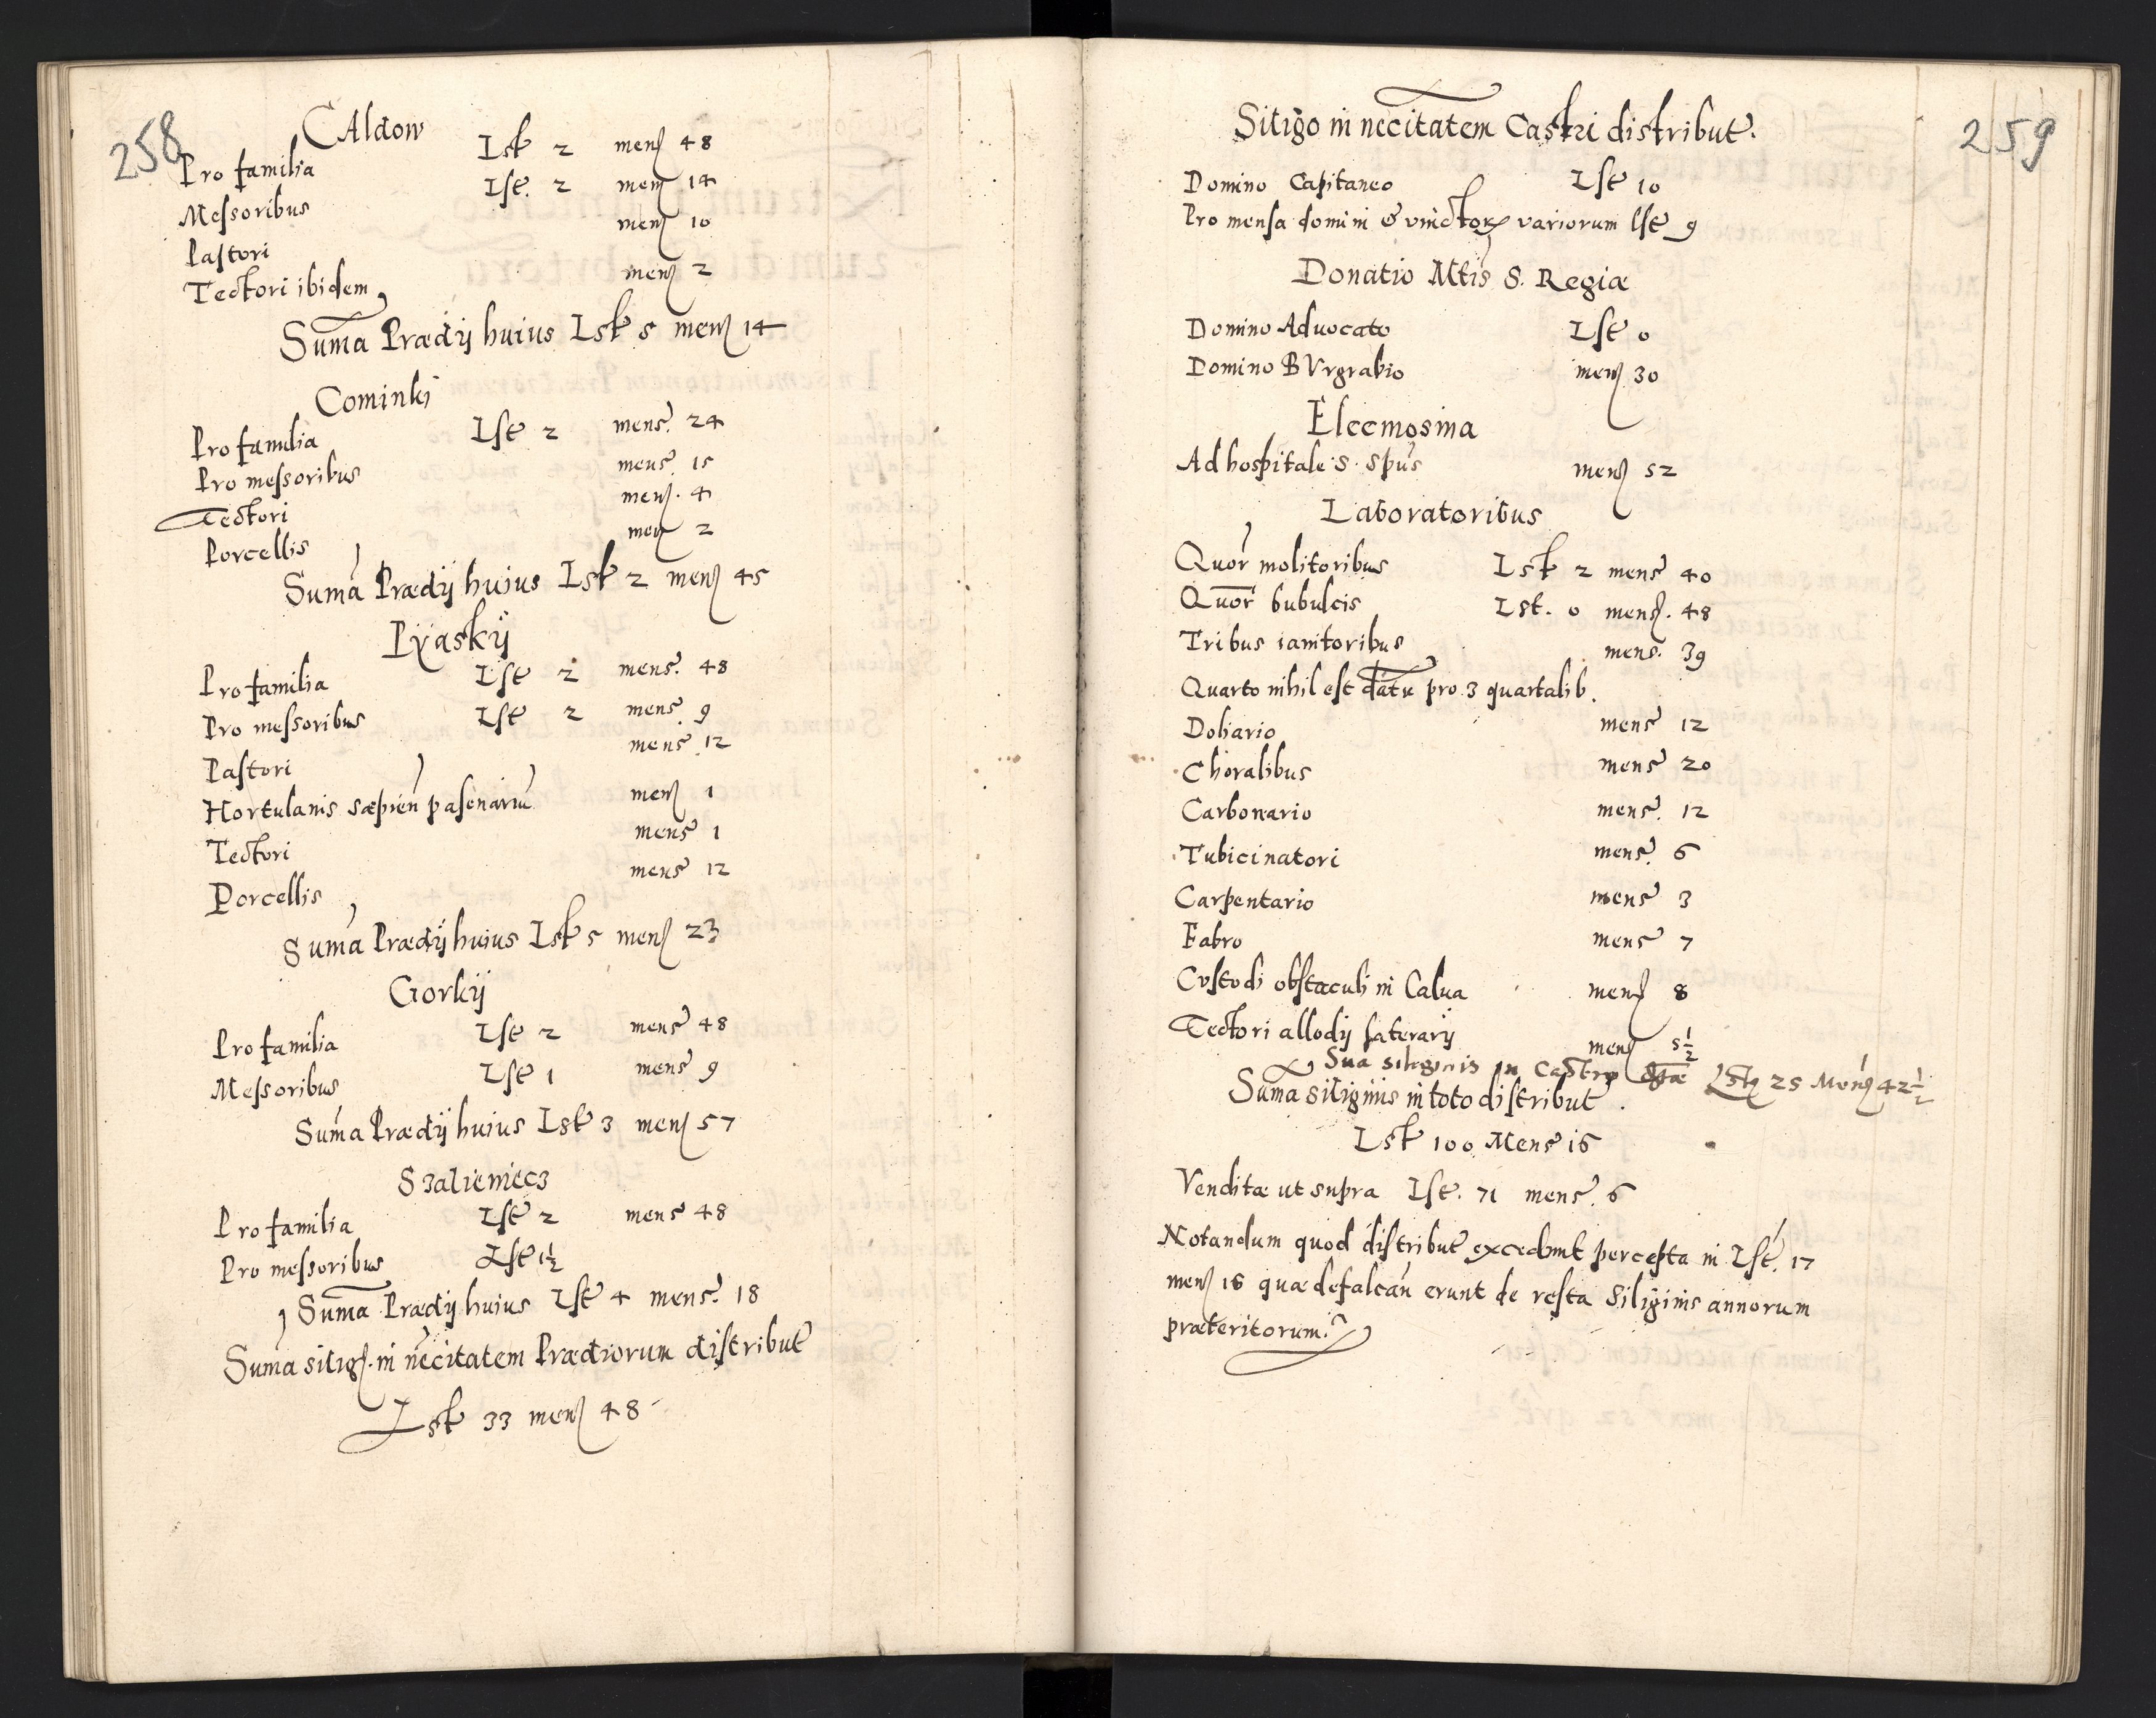 258
CAldow
Pro familia Lst 2 mens 48
Messoribus Lst. 2 mens 14
Pastori mens 10
Tectori ibidem mens 2
Suma Prædij huius Lst 5 mens 14
Cominki
Pro familia Lst 2 mens. 24
Pro messoribus mens. 15
Tectori mens. 4
Porcellis mens 2
Suma Prædij huius Lst 2 mens 45
Pÿaskÿ
Pro familia Lst 2 mens. 48
Pro messoribus Lst 2 mens. 9
Pastori mens. 12
Hortulanis sæpien pasenariu mens 1
Tectori mens 1
Porcellis mens 12
Suma Prædij huius Lst 5 mens 23
Gorkÿ
Pro familia Lst 2 mens 48
Messoribus Lst 1 mens 9
Suma Prædij huius Lst 3 mens 57
Szalieniecz
Pro familia Lst 2 mens 48
Pro messoribus Lst 1½
Suma Prædij huius Lst 4 mens. 18
Suma silig. in necitatem Prædiorum distribut
Lst 33 mens 48
259
Siligo in necitatem Castri distribut.
Domino Capitaneo Lst 10
Pro mensa domini & vinctor variorum lst 9
Donatio Mtis S. Regiæ
Domino Aduocato Lst 0
Domino BVrgrabio mens 30
Eleemosina
Ad hospitale S. Spus mens 52
Laboratoribus
Quor molitoribus Lst 2 mens 40
Quor bubulcis Lst. 0 mens. 48
Tribus ianitoribus mens. 39
Quarto nihil est datu pro 3 quartalib.
Doliario mens 12
Choralibus mens 20
Carbonario mens. 12
Tubicinatori mens. 6
Carpentario mens 3
Fabro mens 7
Cvstodi obstaculi in Calua mens 8
Tectori allodij laterarij mens 5½
Sua siliginis in Castro Lst 25 Mens 42½
Suma siliginis in toto distribut.
Lst 100 Mens 16
Venditæ ut supra Lst. 71 mens. 6
Notandum quod distribut excedunt percepta in Lst. 17
mens 16 quæ defalcan erunt de resta Siliginis annorum
præteritorum.